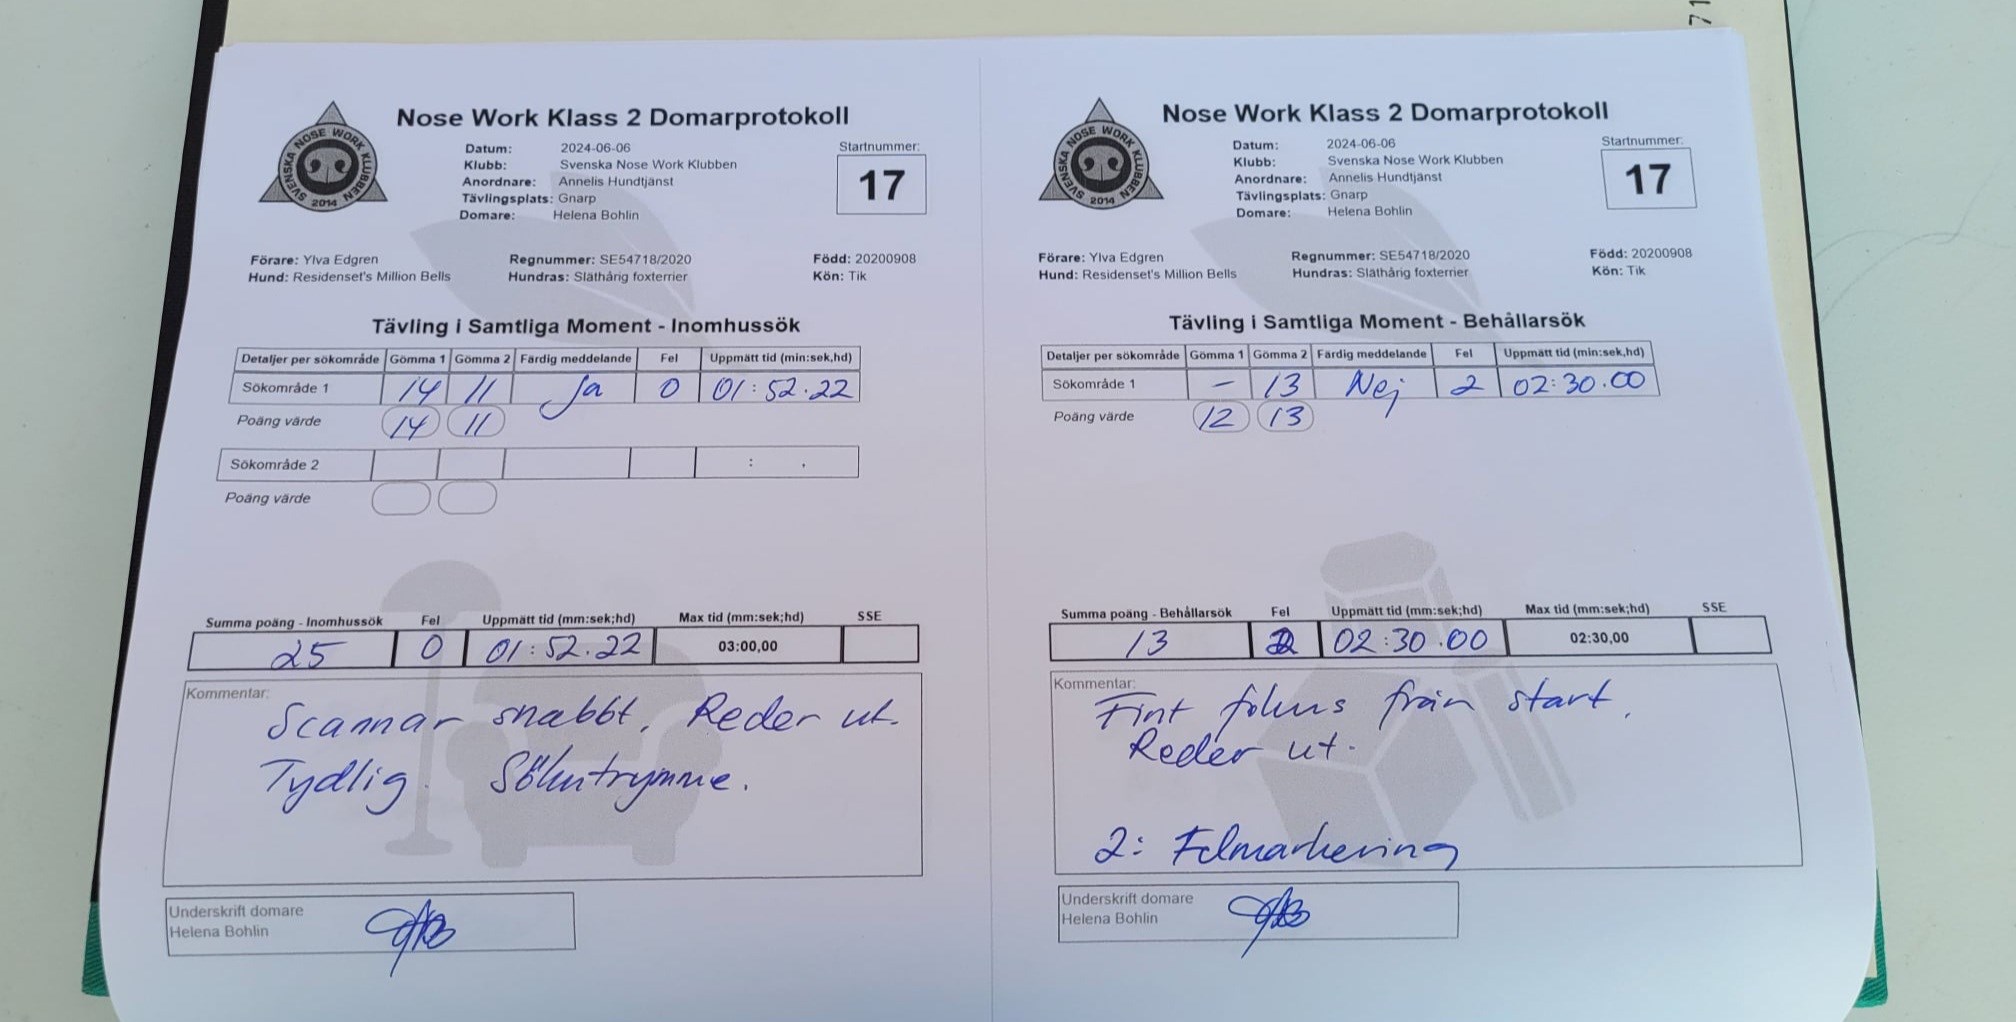 71
Nose Work Klass 2 Domarprotokoll
SVENSKA NOSE WORK KLUBBEN
2014
Datum: 2024-06-06
Klubb: Svenska Nose Work Klubben
Anordnare: Annelis Hundtjänst
Tävlingsplats: Gnarp
Domare: Helena Bohlin
Startnummer:
17
Förare: Ylva Edgren Regnummer: SE54718/2020 Född: 20200908
Hund: Residenset's Million Bells Hundras: Släthårig foxterrier Kön: Tik
Tävling i Samtliga Moment - Inomhussök
Detaljer per sökområde Gömma 1 Gömma 2 Färdig meddelande Fel Uppmätt tid (min:sek,hd)
Sökområde 1 14 11 Ja 0 01:52.22
Poäng värde 14 11
Sökområde 2 : .
Poäng värde
Summa poäng - Inomhussök Fel Uppmätt tid (mm:sek;hd) Max tid (mm:sek;hd) SSE
25 0 01:52.22 03:00,00
Kommentar:
Scannar snabbt. Reder ut.
Tydlig. Sökutrymme.
Underskrift domare
Helena Bohlin
Nose Work Klass 2 Domarprotokoll
SVENSKA NOSE WORK KLUBBEN
2014
Datum: 2024-06-06
Klubb: Svenska Nose Work Klubben
Anordnare: Annelis Hundtjänst
Tävlingsplats: Gnarp
Domare: Helena Bohlin
Startnummer:
17
Förare: Ylva Edgren Regnummer: SE54718/2020 Född: 20200908
Hund: Residenset's Million Bells Hundras: Släthårig foxterrier Kön: Tik
Tävling i Samtliga Moment - Behållarsök
Detaljer per sökområde Gömma 1 Gömma 2 Färdig meddelande Fel Uppmätt tid (min:sek,hd)
Sökområde 1 – 13 Nej 2 02:30.00
Poäng värde 12 13
Summa poäng - Behållarsök Fel Uppmätt tid (mm:sek;hd) Max tid (mm:sek;hd) SSE
13 2 02:30.00 02:30,00
Kommentar:
Fint fokus från start.
Reder ut.
2: Felmarkering
Underskrift domare
Helena Bohlin